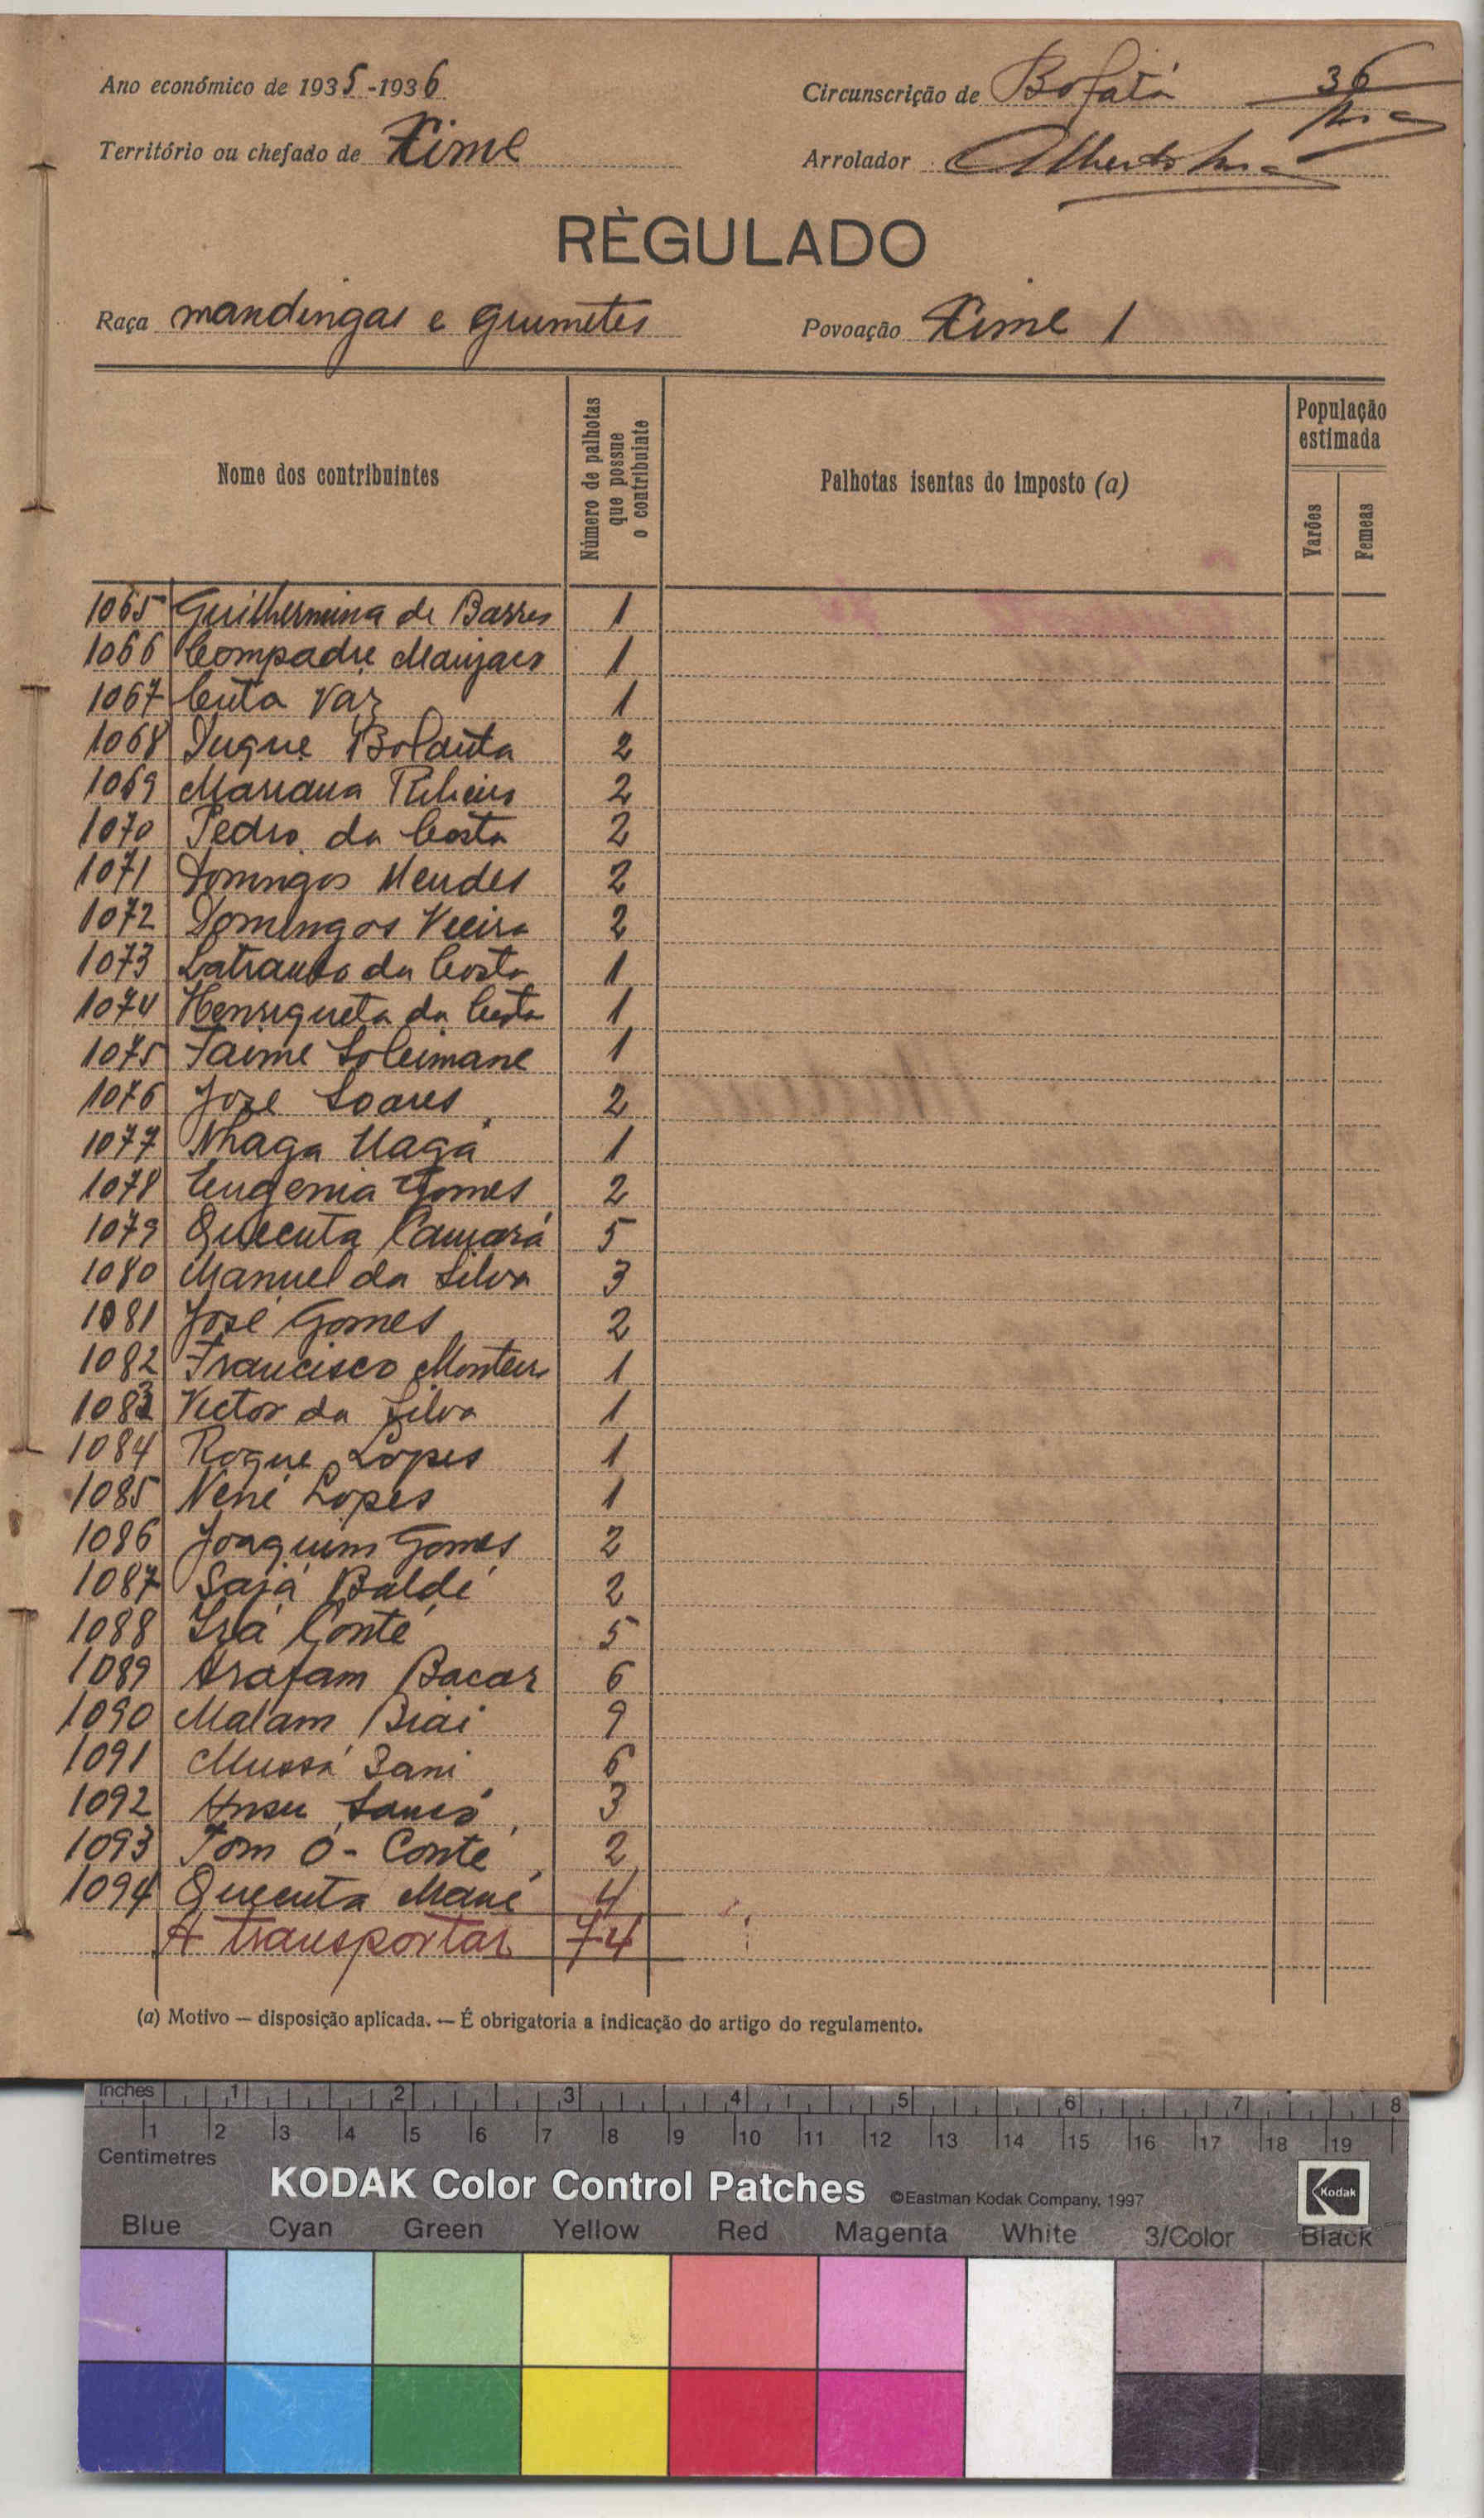 Ano económico de 1935-1936
Circunscrição de Bafatá
36
Território ou chefado de Xime
Arrolador Alberto
RÈGULADO
Raça mandingas e grumetes
Povoação Xime 1
Nome dos contribuintes
Número de palhotas que possue o contribuinte
Palhotas isentas do imposto (a)
População estimada
Varões
Femeas
1065 Guilhermina de Barros 1
1066 Compadre Manjaco 1
1067 Cuta Vaz 1
1068 Duque 2
1069 Mariana Ribeiro 2
1070 Pedro da Costa 2
1071 Domingos Mendes 2
1072 Domingos Vieira 2
1073 da Costa 1
1074 Henriqueta da Costa 1
1075 Jaime Soleimane 1
1076 José Soares 2
1077 Nhaga Uaga 1
1078 Eugenia Gomes 2
1079 Quecuta Camará 5
1080 Manuel da Silva 3
1081 José Gomes 2
1082 Francisco Monteiro 1
1083 Victor da Silva 1
1084 Roque Lopes 1
1085 Nené Lopes 1
1086 Joaquim Gomes 2
1087 Sajá Baldé 2
1088 Conté 5
1089 Arafam Bacar 6
1090 Malam Biai 9
1091 Mussá Sani 6
1092 Ansu Sancó 3
1093 Tom Ó - Conté 2
1094 Quecuta Mané 4
A transportar 74
(a) Motivo — disposição aplicada. — É obrigatoria a indicação do artigo do regulamento.
Inches 1 2 3 4 5 6 7 8
1 2 3 4 5 6 7 8 9 10 11 12 13 14 15 16 17 18 19
Centimetres
KODAK Color Control Patches ©Eastman Kodak Company, 1997 Kodak
Blue Cyan Green Yellow Red Magenta White 3/Color Black